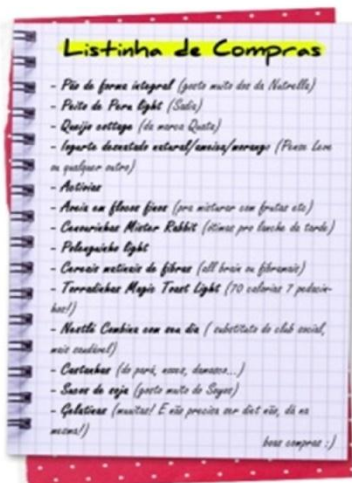 Listinha de Compras
- Pão de forma integral (gosto muito dos da Nutrella)
- Peito de Peru light (Sadia)
- Queijo cottage (da marca Quata)
- Iogurte desnatado natural/ameixa/morango (Pense Leve
ou qualquer outro)
- Activias
- Aveia em flocos finos (pra misturar com frutas etc)
- Cenourinhas Mister Rabbit (ótimas pro lanche da tarde)
- Polenguinho light
- Cereais matinais de fibras (all brain ou fibramais)
- Torradinhas Magic Toast Light (70 calorias 7 pedacin-
hos!)
- Nestlé Combina com seu dia ( substituto do club social,
mais saudável)
- Castanhas (do pará, nozes, damasco...)
- Sucos de soja (gosto muto do Soyos)
- Gelatinas (muuitas! E não precisa ser diet não, dá na
mesma!)
boas compras :)